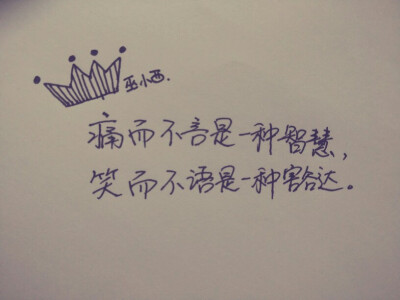 巫小西.
痛而不言是一种智慧,
笑而不语是一种豁达。